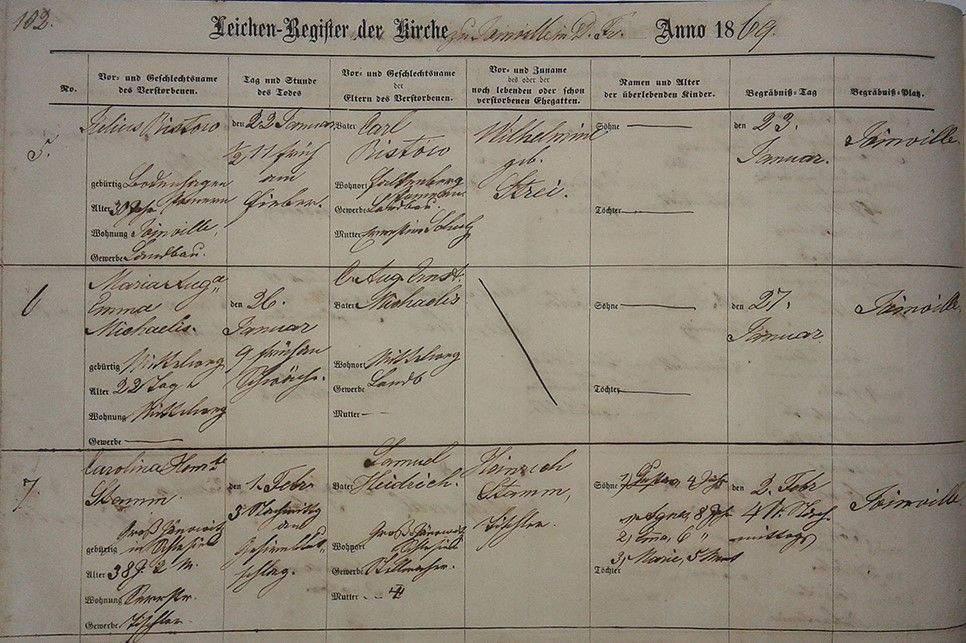 102.
Leichen-Register der Kirche zu Joinville in D. Fr. Anno 1869.
No.
Vor- und Geschlechtsname des Verstorbenen.
Tag und Stunde des Todes
Vor- und Geschlechtsname der Eltern des Verstorbenen.
Vor- und Zuname des oder der noch lebenden oder schon verstorbenen Ehegatten.
Namen und Alter der überlebenden Kinder.
Begräbniß-Tag
Begräbniß-Platz.
5.
Julius Ristow
gebürtig Bodenhagen
Pommern
Alter
Wohnung Joinville,
Gewerbe Landbau.
den 22 Januar
1/2 11 früh
am
Fieber.
Vater Carl
Ristow
Wohnort
Gewerbe Landbau.
Mutter Ernestine
Wilhelmine
geb.
Söhne —
Töchter —
den 23.
Januar.
Joinville.
6
Maria Aug.
Emma
Michaelis.
gebürtig Mittelweg
Alter 22 Tag
Wohnung Mittelweg
Gewerbe —
den 26.
Januar
9
Schwäche.
C. Aug. Ernst
Vater Michaelis
Wohnort Mittelweg
Gewerbe Landb
Mutter —
Söhne —
Töchter —
den 27.
Januar
Joinville.
7.
Carolina
Stamm.
Groß
gebürtig in Schlesien
Alter 38 J. 2 M.
Wohnung
Gewerbe Tischler.
den 1. Febr
3 Nachmittag
am
Gehirnschlag.
Samuel
Vater Heidrich.
Groß
Wohnort Schlesien
Gewerbe
Mutter
Heinrich
Stamm,
Tischler.
Söhne 1, Gustav, 4 Jahr
1, Agnes 8 J.
2, 6 "
3, Marie, 5 Mon
Töchter
den 2. Febr
4 U. Nach-
mittag
Joinville